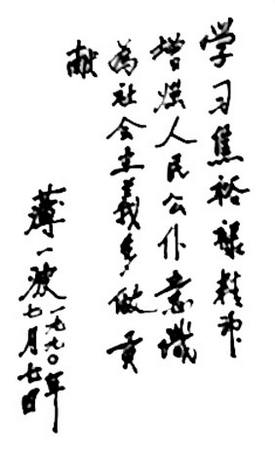 学习焦裕禄精神
增强人民公仆意識
為社会主義多做貢
献
薄一波
一九九〇年
七月七日